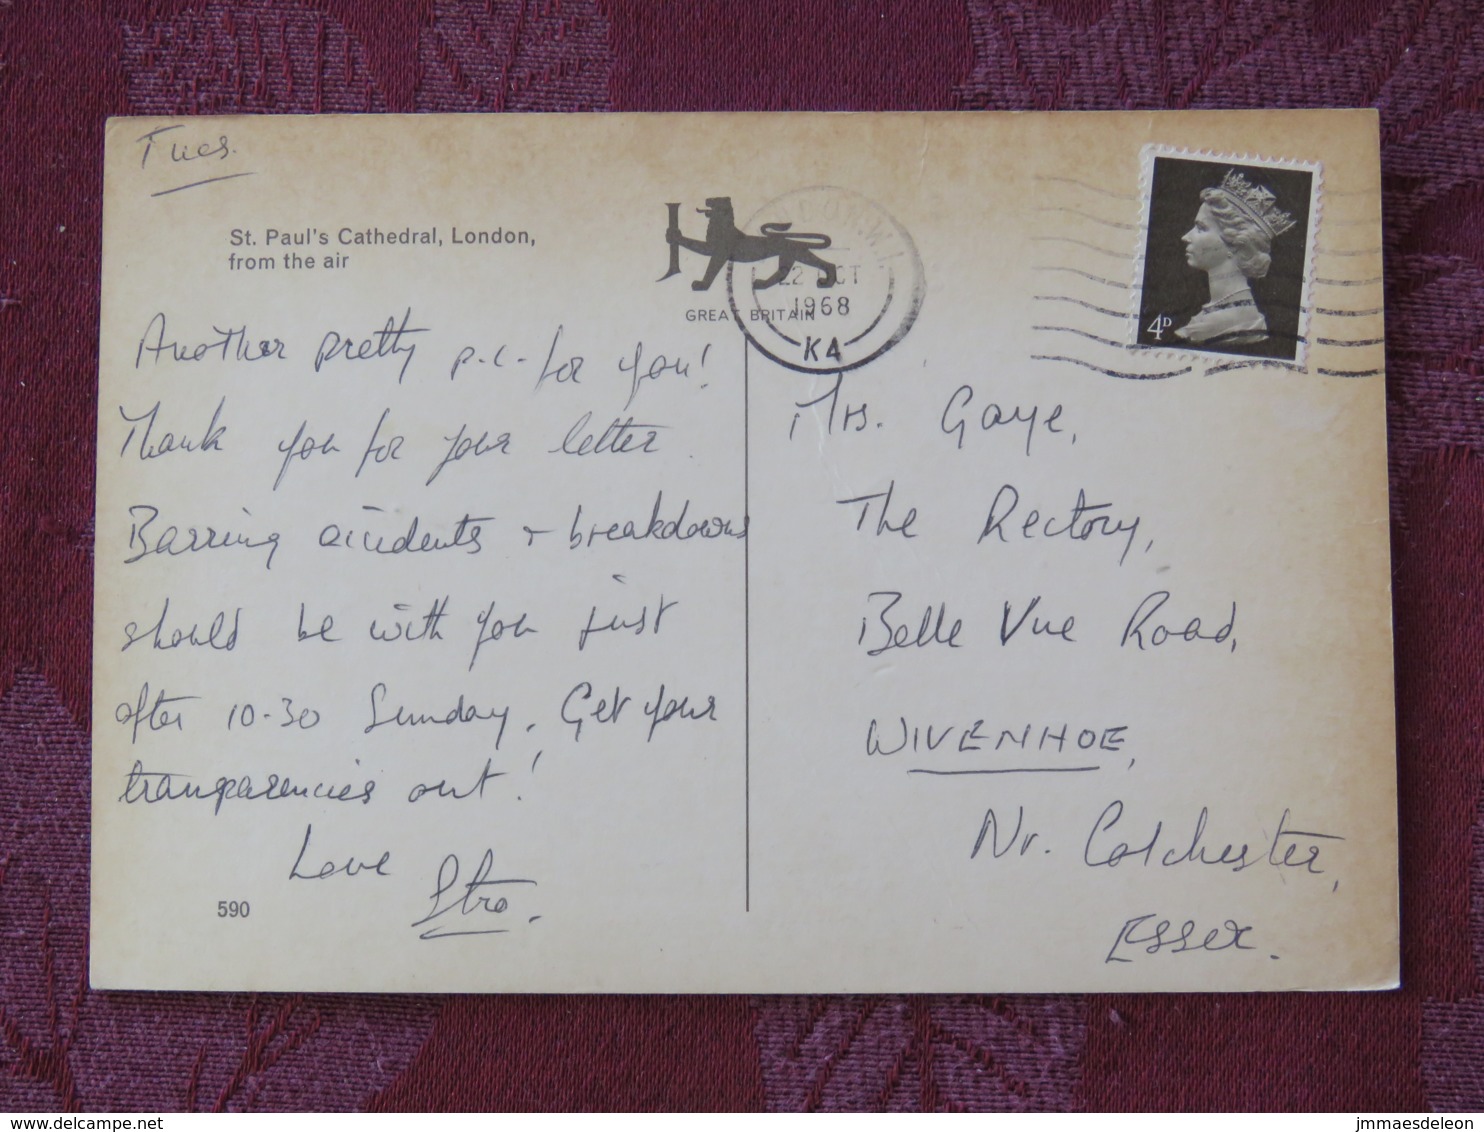 Tues.
St. Paul's Cathedral, London,
from the air
GREAT BRITAIN
22 OCT
1968
K4
4D
Another pretty p.c. for you!
Thank you for your letter.
Barring accidents + breakdowns
should be with you just
after 10-30 Sunday. Get your
transparencies out!
Love
590
Mrs. Gaye,
The Rectory,
Belle Vue Road,
WIVENHOE,
Nr. Colchester,
Essex.
delcampe.net
jmmaesdeleon